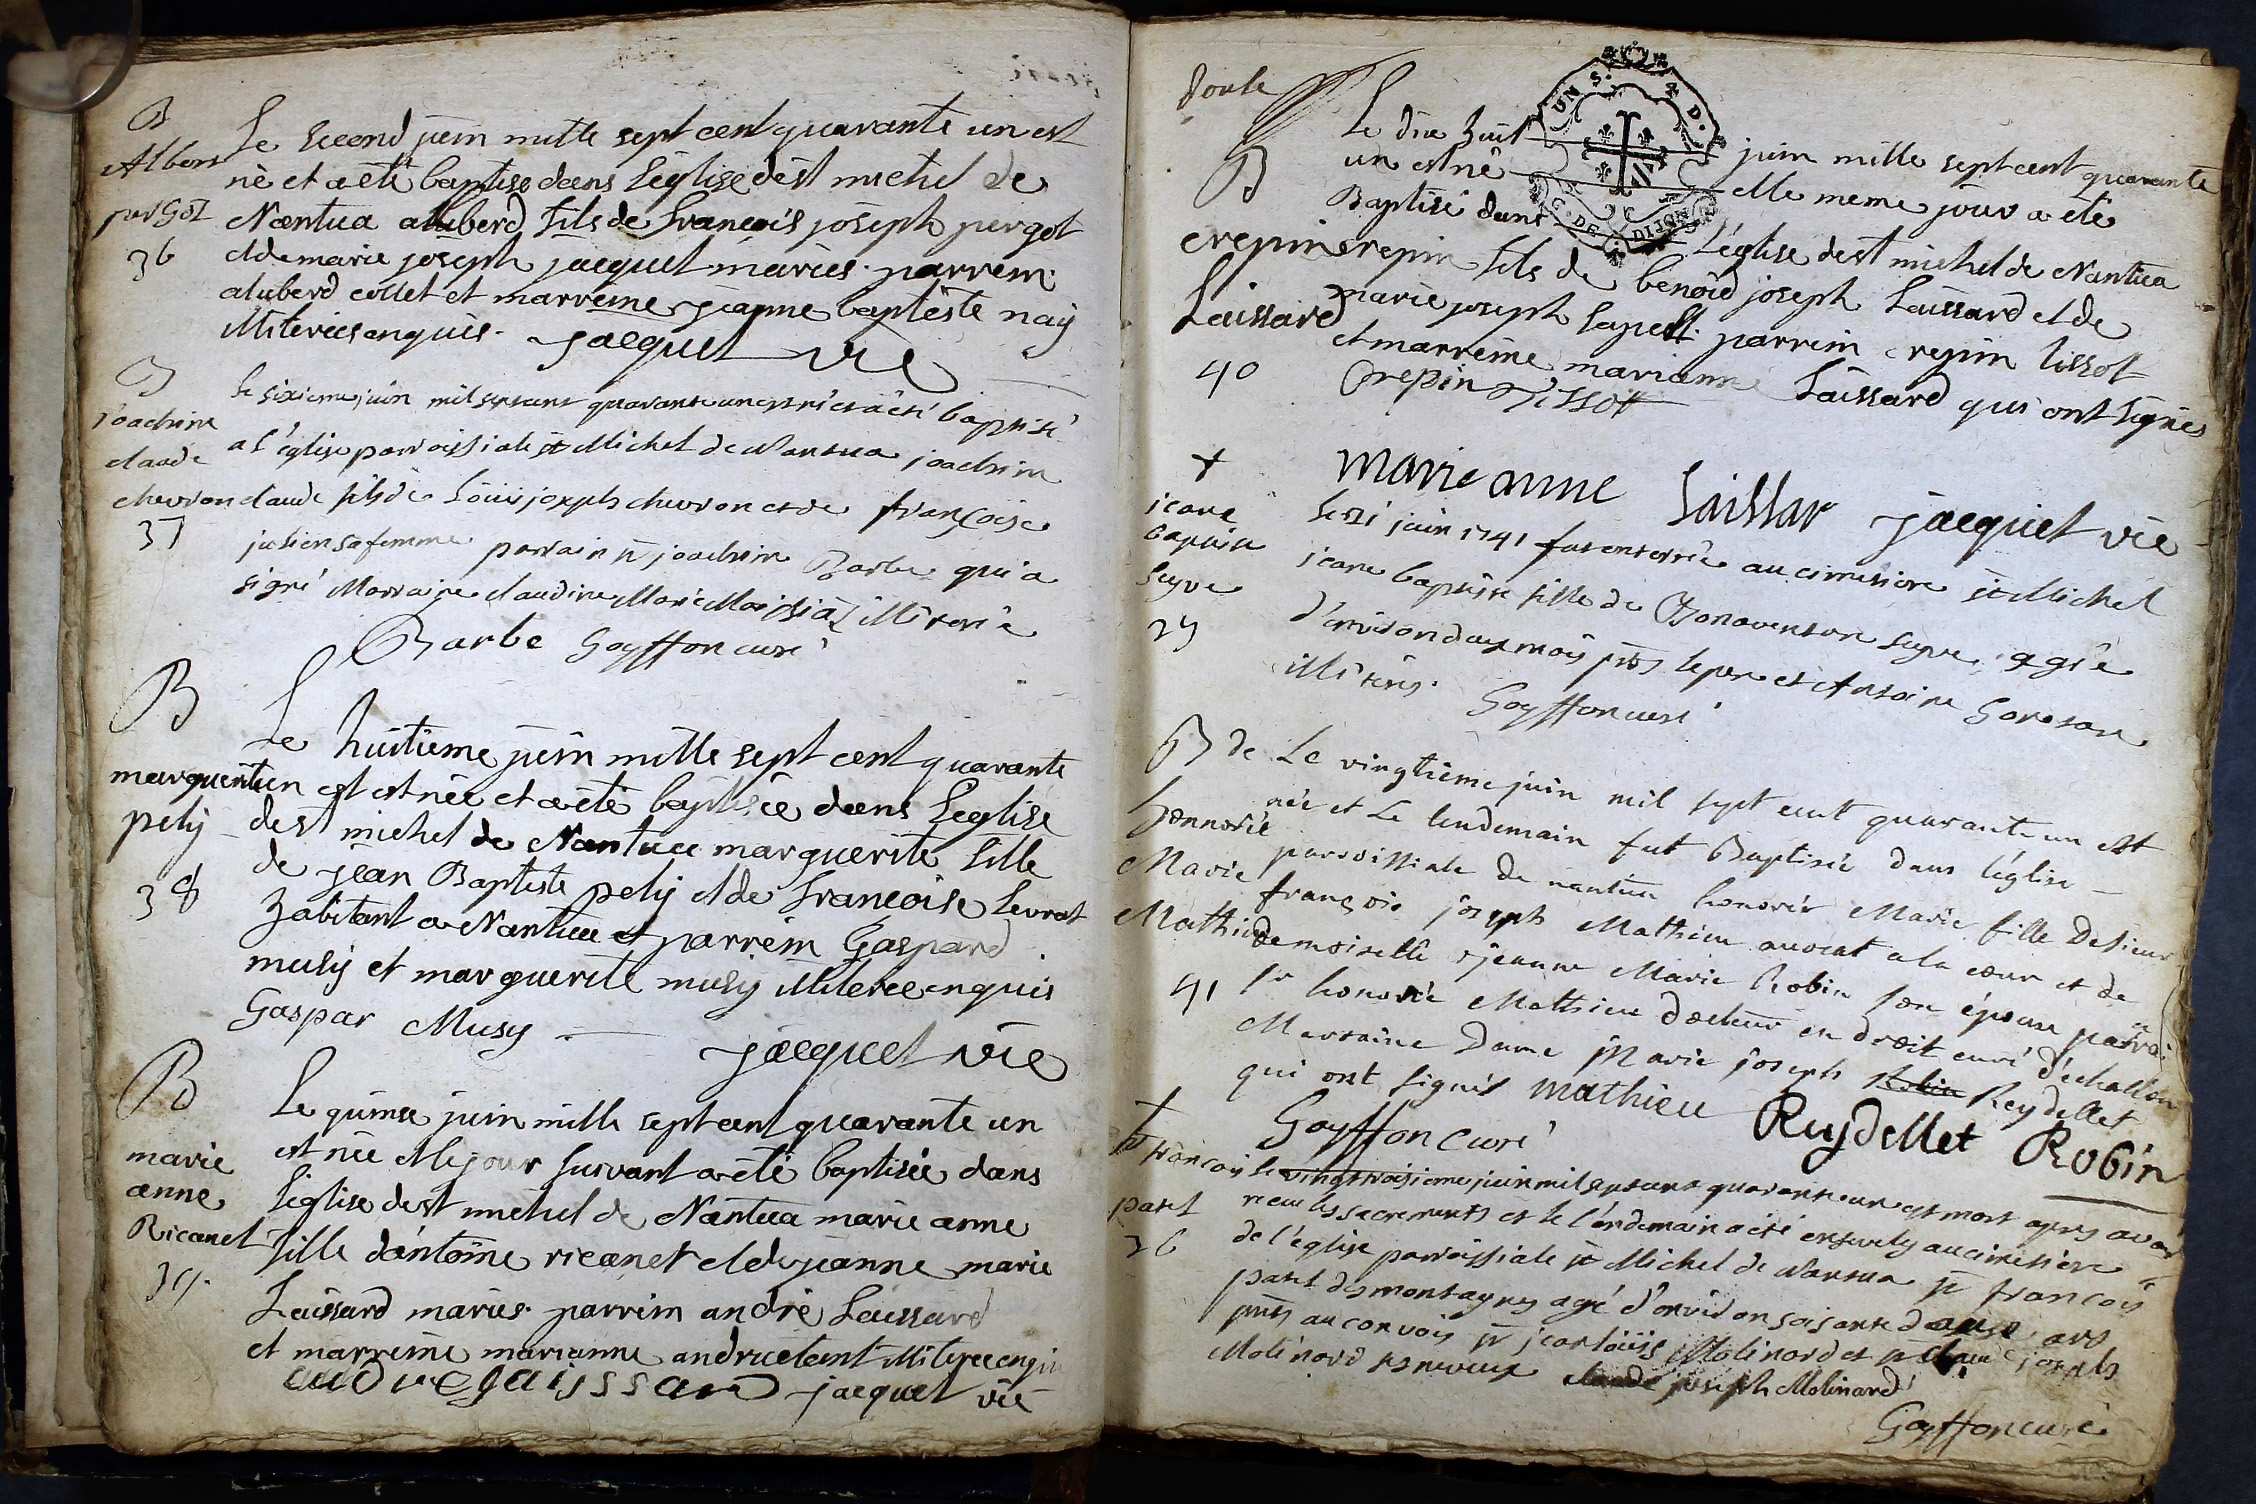 B
Albert
pergot
36
Le second juin mille sept cent quarante un est
né et a été baptisé dans l'église de st michel de
Nantua aluberd fils de françois joseph pergot
et de marie joseph jacquet mariés. parrein
aluberd collet et marreine jeanne baptiste nay
illiterées enquis. jacquet vic
B
joachim
claude
chevron
37
le sixieme juin mil sept cent quarante un est né et a été baptisé
a l'église parroissiale st Michel de Nantua joachim
claude fils de Louis joseph chevron et de françoise
julien sa femme parrain sr joachim Barbe qui a
signé Marraine claudine Marie illiterée
Barbe Goyffon curé
B
marguerite
pely
38
Le huitieme juin mille sept cent quarante
un est est née et a été baptisée dans l'eglise
de st michel de Nantua marguerite fille
de jean Baptiste pely et de françoise Levrat
habitant a Nantua et parrein Gaspard
musy et marguerite musy illiteree enquis
Gaspar Musy jacquet vic
B
marie
anne
Ricanet
39.
Le quinse juin mille sept cent quarante un
est née et le jour suivant a été baptisée dans
l'église de st michel de Nantua marie anne
fille d'antoine ricanet et de jeanne marie
Laissard mariés. parrein andré Laissard
et marreine marianne andrietant illiteree enqui
andre laissard jacquet vic
Le dix huit juin mille sept cent quarante
un est né et le meme jour a été
Baptisé dans l'église de st michel de Nantua
B
crepin
Laissard
40
crepin fils de benoid joseph Laissard et de
marie joseph parrein crepin tissot
et marreine marianne Laissard qui ont signés
Crepin Tissot
marie anne laissar jacquet vic
+
jeane
baptiste
seyve
25
le 21 juin 1741 fut enterrée au cimetiere st Michel
jeane baptiste fille de Bonaventure seyve agée
d'environ deux mois pnts le pere et Antoine
illiterés. Goyffon curé
B de
honnorée
Marie
Mathieu
41
Le vingtième juin mil sept cent quarante un est
née et Le lendemain fut Baptisée dans l'église
parroissiale de nantua honorée Marie fille de sieur
françois joseph Mathieu avocat a la cour et de
demoiselle jeanne Marie Robin son épouse parrain
sr honoré Mathieu docteur en droit curé d'echallon
Marraine Dame Marie joseph Robin Reydellet
qui ont signés mathieu Reydellet Robin
Goyffon Curé
+
sr françois
panet
26
le vingt troisieme juin mil sept cent quarante un est mort apres avoir
receu les sacrements et le l'endemain a été ensevely au cimetiere
de l'église parroissiale st Michel de Nantua sr françois
panet des montagnes agé d'environ soisante douse ans
pnts au convois sr jean louis Molinard et sr claude joseph
Molinard ses neveux claude joseph Molinard
Goyffon curé
UN S. 4 D.
G. DE DIJON